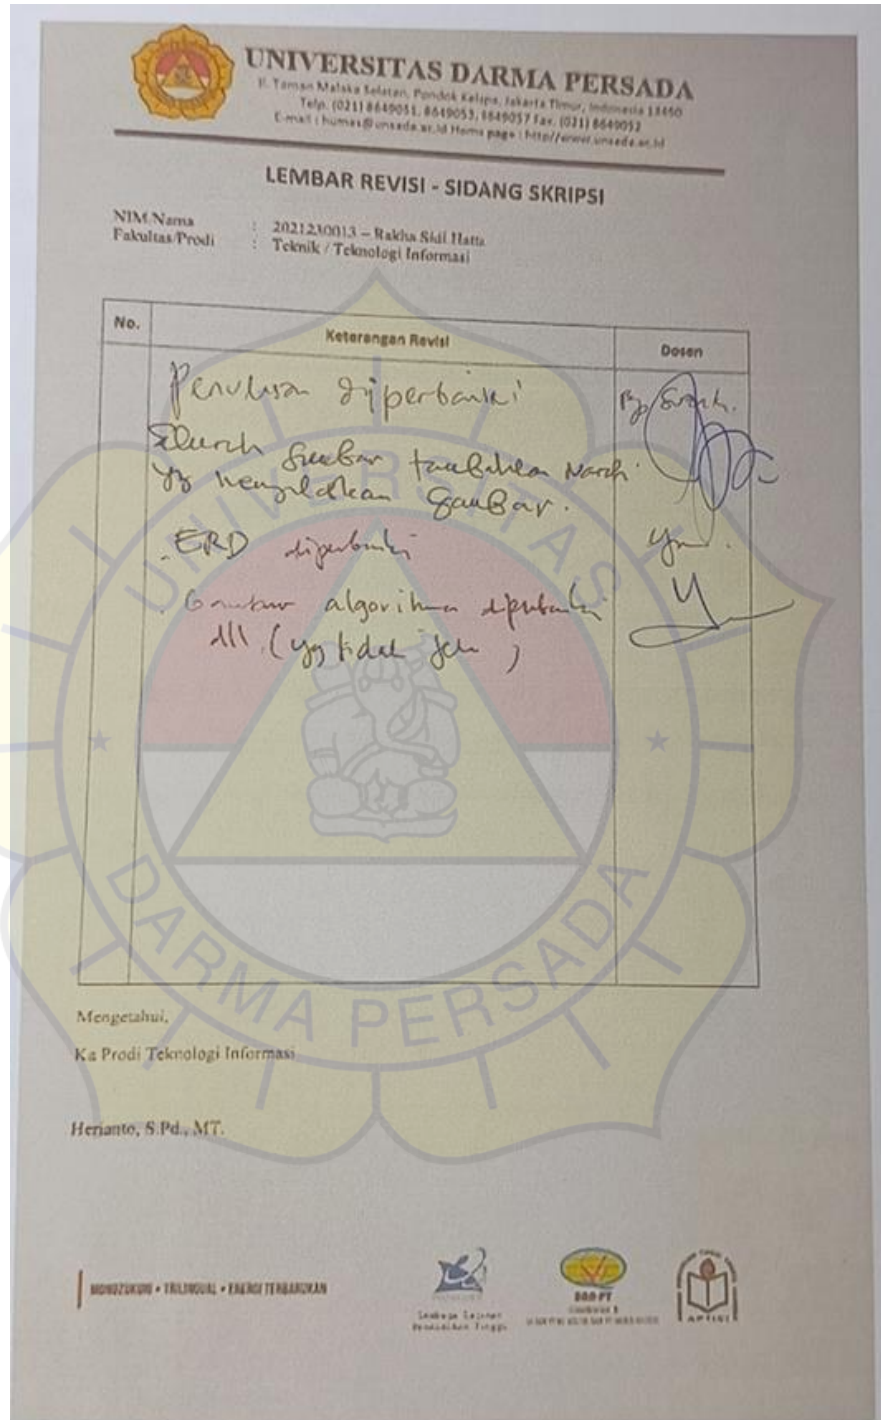 UNIVERSITAS DARMA PERSADA
Jl. Taman Malaka Selatan, Pondok Kelapa, Jakarta Timur, Indonesia 13450
Telp. (021) 8649051, 8649053, 8649057 Fax. (021) 8649052
E-mail : humas@unsada.ac.id Home page : http//www.unsada.ac.id
LEMBAR REVISI - SIDANG SKRIPSI
NIM/Nama : 2021230013 – Rakha Sidi Hatta
Fakultas/Prodi : Teknik / Teknologi Informasi
No. Keterangan Revisi Dosen
Penulisan diperbaiki
Seluruh Gambar tambahkan Narasi
yg menjelaskan Gambar.
. ERD diperbaiki
. Gambar algoritma diperbaiki
dll (yg tidak jelas)
UNIVERSITAS
DARMA PERSADA
Mengetahui,
Ka Prodi Teknologi Informasi
Herianto, S.Pd., MT.
MONOZUKURI • TRILINGUAL • ENERGI TERBARUKAN
Lembaga Layanan
Pendidikan Tinggi
BAN-PT
APTISI